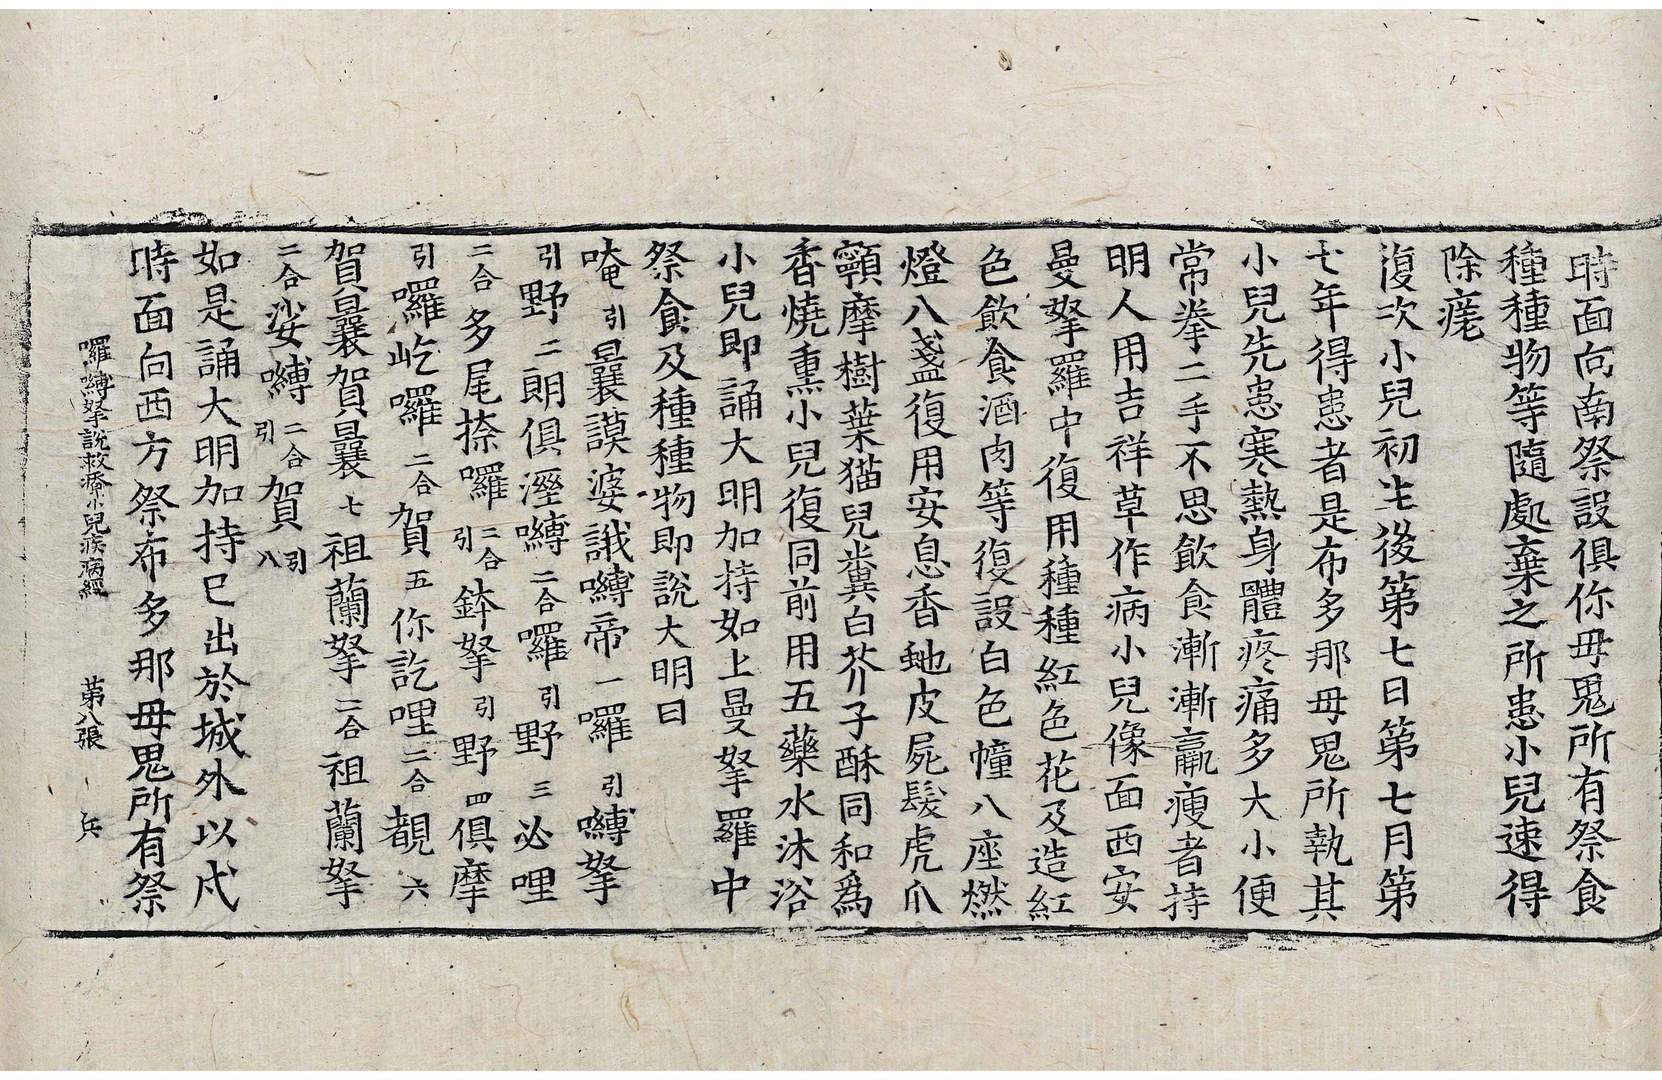 時面向南祭設俱你毋鬼所有祭食
種種物等隨處棄之所患小兒速得
除瘥
復次小兒初生後第七日第七月第
七年得患者是布多那毋鬼所執其
小兒先患寒熱身體疼痛多大小便
常拳二手不思飲食漸漸羸瘦者持
明人用吉祥草作病小兒像面西安
曼拏羅中復用種種紅色花及造紅
色飲食酒肉等復設白色幢八座燃
燈八盞復用安息香虵皮屍髮虎爪
顊摩樹葉猫兒糞白芥子酥同和爲
香燒熏小兒復同前用五藥水沐浴
小兒即誦大明加持如上曼拏羅中
祭食及種種物即說大明曰
唵引曩謨婆誐嚩帝一囉引嚩拏
引野二朗俱溼嚩二合囉引野三必哩
二合多尾捺囉二合引鉢拏引野四俱摩
引囉屹囉二合賀五你訖哩二合覩六
賀曩賀曩七祖蘭拏二合祖蘭拏
二合娑嚩二合引賀引八
如是誦大明加持巳出於城外以戌
時面向西方祭布多那毋鬼所有祭
囉嚩拏說救療小兒疾病經 第八張 兵